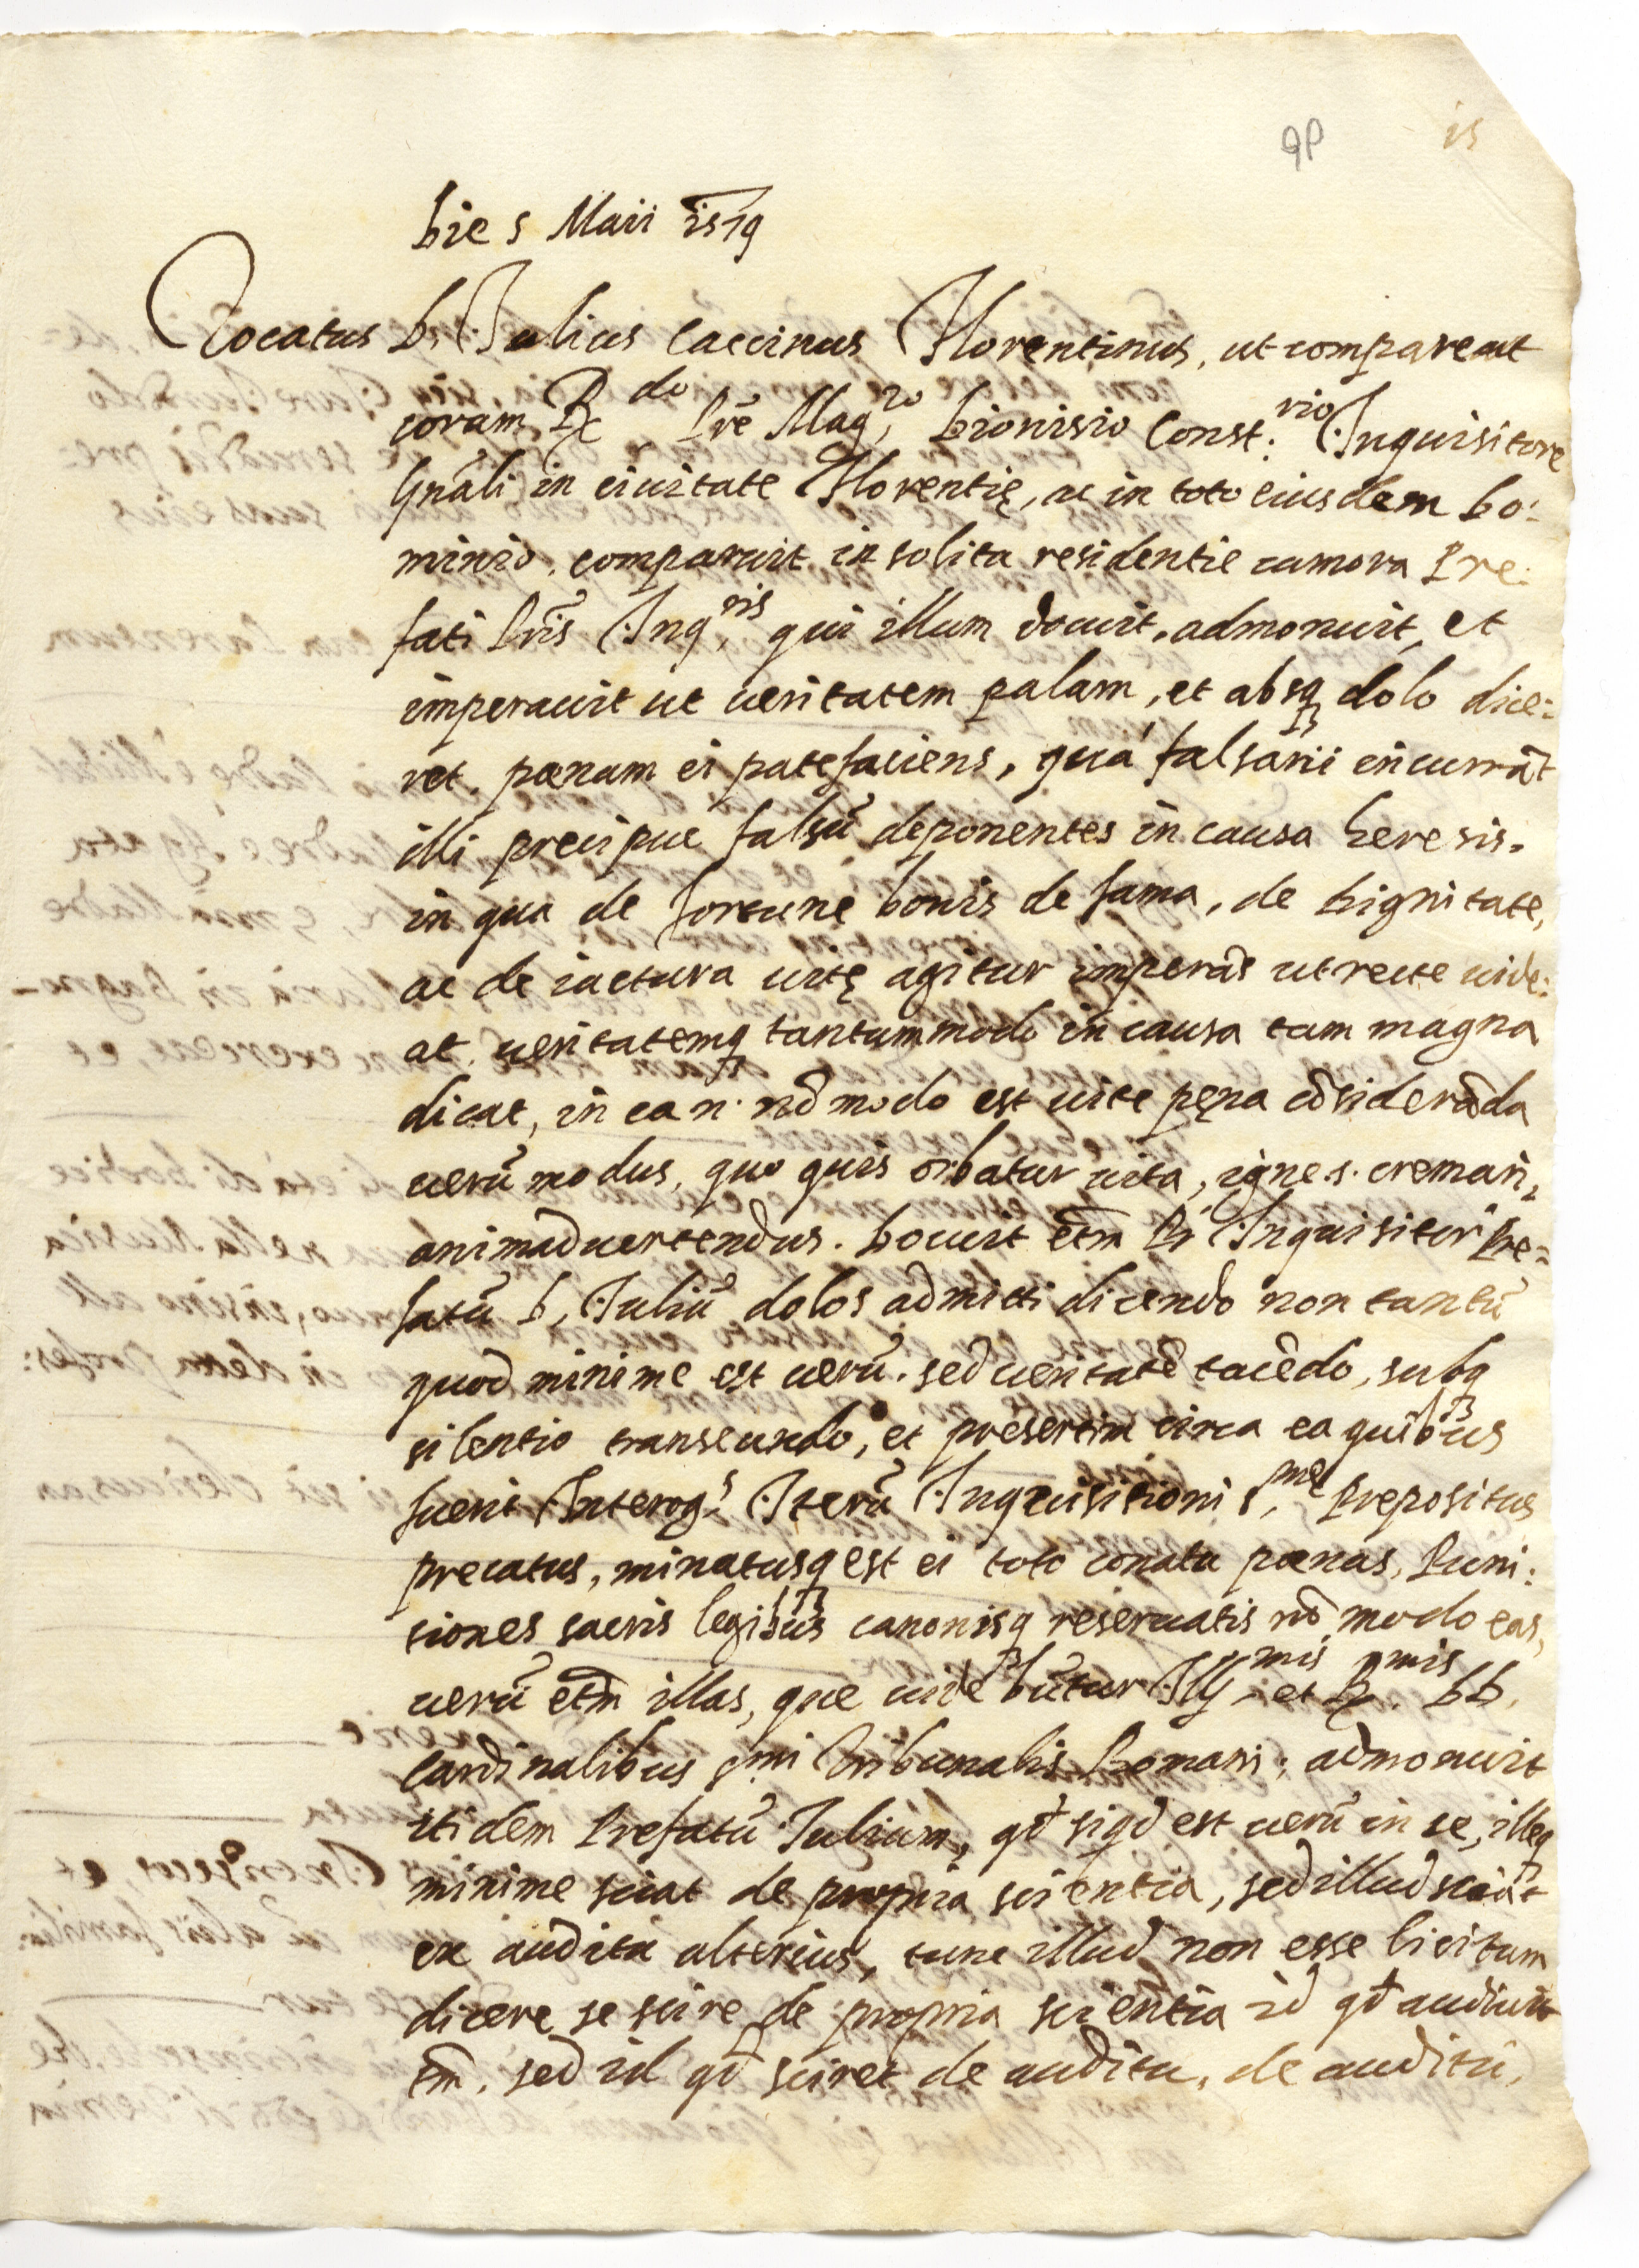 qp
15
Die 5 Maii 1579
Vocatus D. Iulius Caccinus Florentinus, ut compareat
coram R.do Prẽ Mag.ro Dionisio Const.rio Inquisitore
Gñali in ciuitate Florentię, ac in toto eiusdem Do:
minio. comparuit in solita residentie camera Pre:
fati Pris Inq.ris qui illum docuit, admonuit, et
imperauit ut ueritatem palam, et absq; dolo dice:
ret. pœnam ei patefaciens, quã falsarii incurrãt
illi precipue falsũ deponentes in causa heresis.
in qua de fortune bonis de fama, de dignitate,
ac de iactura uitę agitur imperãs ut recte uide:
at. ueritatemq; tantummodo in causa tam magna
dicat, in ea n. nõ modo est uite pęna cõsiderãda
uerũ modus, quo quis orbatur uita, igne .s. cremari,
animaduertendus. Docuit etm̃ Pr Inquisitor Pre:
fatũ D. Iuliũ dolos admitti dicendo non tantũ
quod minime est uerũ. sed ueritatẽ tacẽdo, subq;
silentio transeundo, et presertim circa ea quibus
fuerit Interog.s Iterũ Inquisitioni s.me Prepositus
precatus, minatusq; est ei toto conatu pœnas, Puni:
tiones sacris legibus canonisq; reseruatis nõ modo eas,
uerũ etm̃ illas, que uidebũtur Ill.mis et R.mis DD.
Cardinalibus s.mi Tribunalis Romani; admonuit
itidem Prefatũ Iulium, qđ siqđ est uerũ in se, illeq;
minime sciat de propria scientia, sed illud sciat
ex auditu alterius, tunc illud non esse licitum
dicere se scire de propria scientia id qđ audiuit
tm̃. sed id qđ sciret de auditu, de auditu,